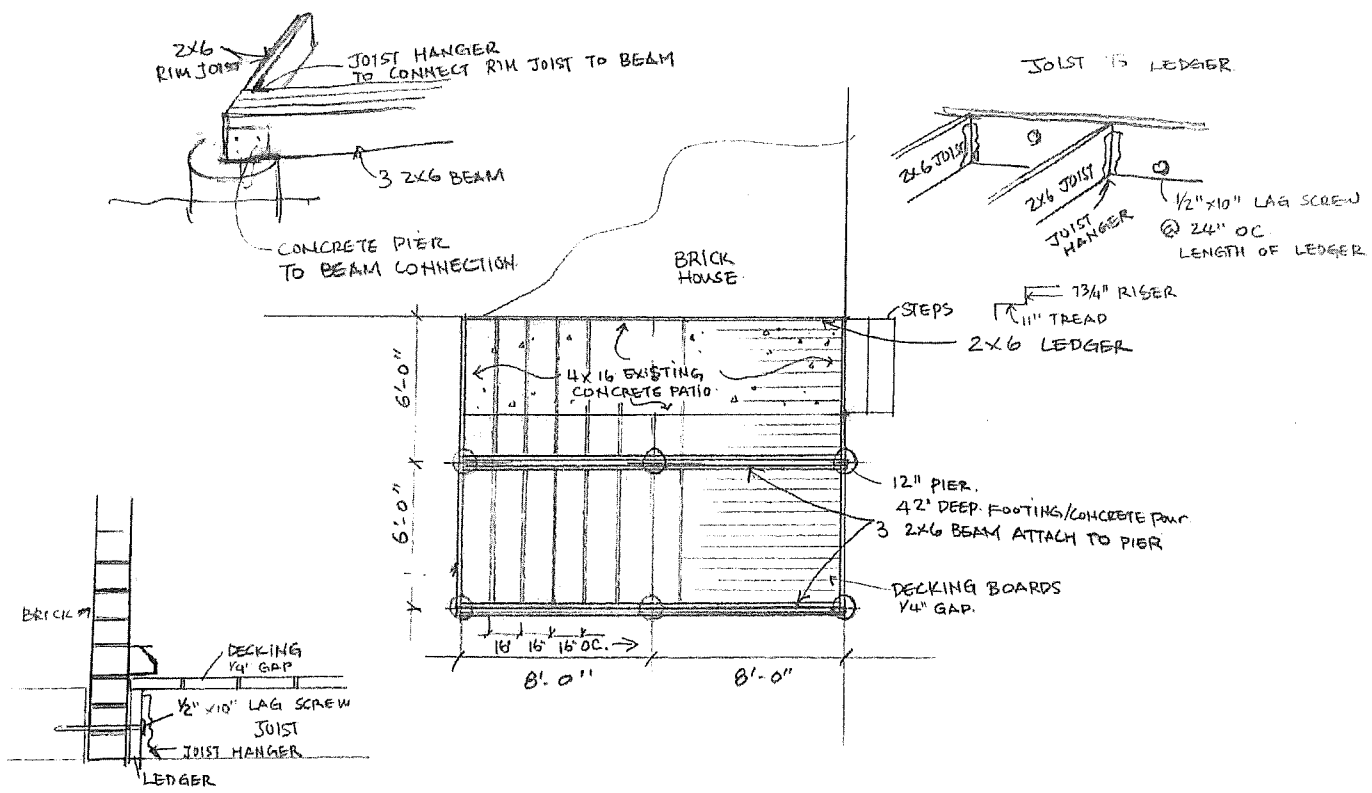 2X6
RIM JOIST
JOIST HANGER
TO CONNECT RIM JOIST TO BEAM
3 2X6 BEAM
CONCRETE PIER
TO BEAM CONNECTION.
JOIST TO LEDGER
2X6 JOIST
2X6 JOIST
JOIST
HANGER
1/2" X10" LAG SCREW
@ 24" OC.
LENGTH OF LEDGER
BRICK
HOUSE
STEPS
7 3/4" RISER
11" TREAD
2X6 LEDGER
4X16 EXISTING
CONCRETE PATIO
6'-0"
6'-0"
12" PIER.
42" DEEP. FOOTING/CONCRETE POUR
3 2X6 BEAM ATTACH TO PIER
DECKING BOARDS
1/4" GAP.
16" 16" 16" OC.
8'-0"
8'-0"
BRICK
DECKING
1/4" GAP
1/2" X10" LAG SCREW
JOIST
JOIST HANGER
LEDGER